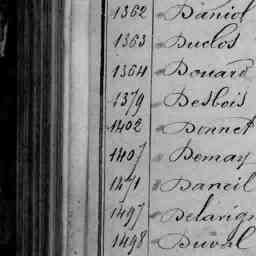 1362 Daniol
1363 Duclos
1364 Douard
1379 Desbois
1402 Donnet
1407 Demay
1471 Daneil
1497 Delavign
1498 Duval